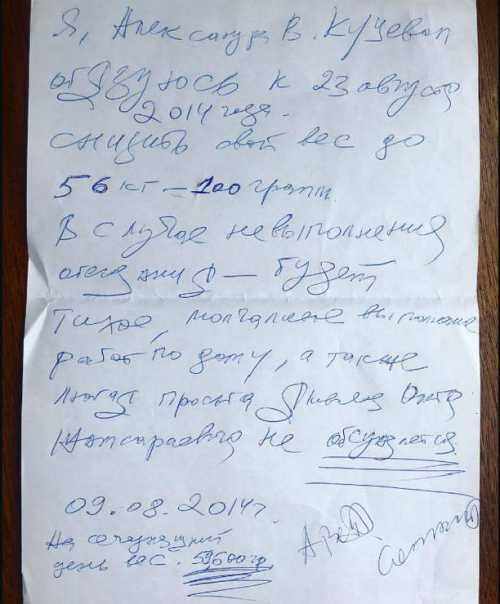 Я, Александра В. Куцевол
обязуюсь к 23 августа
2014 года.
снизить свой вес до
56 кг – 100 грамм.
В случае невыполнения
– будет
Тихое, молчаливое выполнение
работ по дому, а также
любая просьба
не обсуждается.
09.08.2014г.
На сегодняшний
день вес. 59,600гр